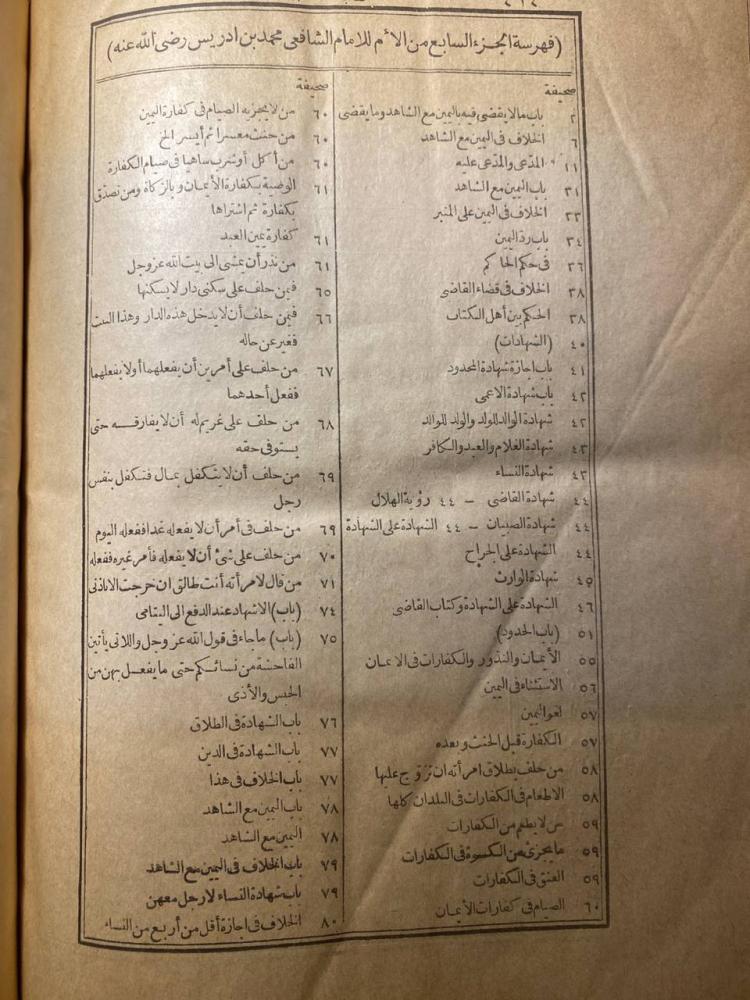 ٤١٤
(فهرسة الجزء السابع من الأم للامام الشافعى محمد بن ادريس رضى الله عنه)
صحيفة
٢ باب ما لا يقضى فيه باليمين مع الشاهد وما يقضى
٦ الخلاف فى اليمين مع الشاهد
١١ المدّعى والمدّعى عليه
٣١ باب اليمين مع الشاهد
٣٣ الخلاف فى اليمين على المنبر
٣٤ باب رد اليمين
٣٦ فى حكم الحاكم
٣٨ الخلاف فى قضاء القاضى
٣٨ الحكم بين أهل الكتاب
٤٠ (الشهادات)
٤١ باب اجازة شهادة المحدود
٤٢ باب شهادة الاعمى
٤٢ شهادة الوالد للولد والولد للوالد
٤٣ شهادة الغلام والعبد والكافر
٤٣ شهادة النساء
٤٤ شهادة القاضى – ٤٤ رؤية الهلال
٤٤ شهادة الصبيان – ٤٤ الشهادة على الشهادة
٤٤ الشهادة على الجراح
٤٥ شهادة الوارث
٤٦ الشهادة على الشهادة وكتاب القاضى
٥١ (باب الحدود)
٥٥ الأيمان والنذور والكفارات فى الايمان
٥٦ الاستثناء فى اليمين
٥٧ لغو اليمين
٥٧ الكفارة قبل الحنث وبعده
٥٨ من حلف بطلاق امرأته ان تزوّج عليها
٥٨ الاطعام فى الكفارات فى البلدان كلها
٥٩ من لا يطعم من الكفارات
٥٩ ما يجزئ من الكسوة فى الكفارات
٥٩ العتق فى الكفارات
٦٠ الصيام فى كفارات الأيمان
صحيفة
٦٠ من لا يجزيه الصيام فى كفارة اليمين
٦٠ من حنث معسرا ثم أيسر الخ
٦٠ من أكل أو شرب ساهيا فى صيام الكفارة
٦١ الوصية بكفارة الأيمان وبالزكاة ومن تصدّق
بكفارة ثم اشتراها
٦١ كفارة يمين العبد
٦١ من نذر أن يمشى الى بيت الله عز وجل
٦٥ فيمن حلف على سكنى دار لا يسكنها
٦٦ فيمن حلف أن لا يدخل هذه الدار وهذا البيت
فغير عن حاله
٦٧ من حلف على أمرين أن يفعلهما أو لا يفعلهما
ففعل أحدهما
٦٨ من حلف على غريم له أن لا يفارقه حتى
يستوفى حقه
٦٩ من حلف أن لا يتكفل بمال فتكفل بنفس
رجل
٦٩ من حلف فى أمر أن لا يفعله غدا ففعله اليوم
٧٠ من حلف على شئ أن لا يفعله فأمر غيره ففعله
٧١ من قال لامرأته أنت طالق ان خرجت الا باذنى
٧٤ (باب) الاشهاد عند الدفع الى اليتامى
٧٥ (باب) ما جاء فى قول الله عز وجل واللاتى يأتين
الفاحشة من نسائكم حتى ما يفعل بهن من
الحبس والأذى
٧٦ باب الشهادة فى الطلاق
٧٧ باب الشهادة فى الدين
٧٧ باب الخلاف فى هذا
٧٨ باب اليمين مع الشاهد
٧٨ اليمين مع الشاهد
٧٩ باب الخلاف فى اليمين مع الشاهد
٧٩ باب شهادة النساء لا رجل معهن
٨٠ الخلاف فى اجازة أقل من أربع من النساء